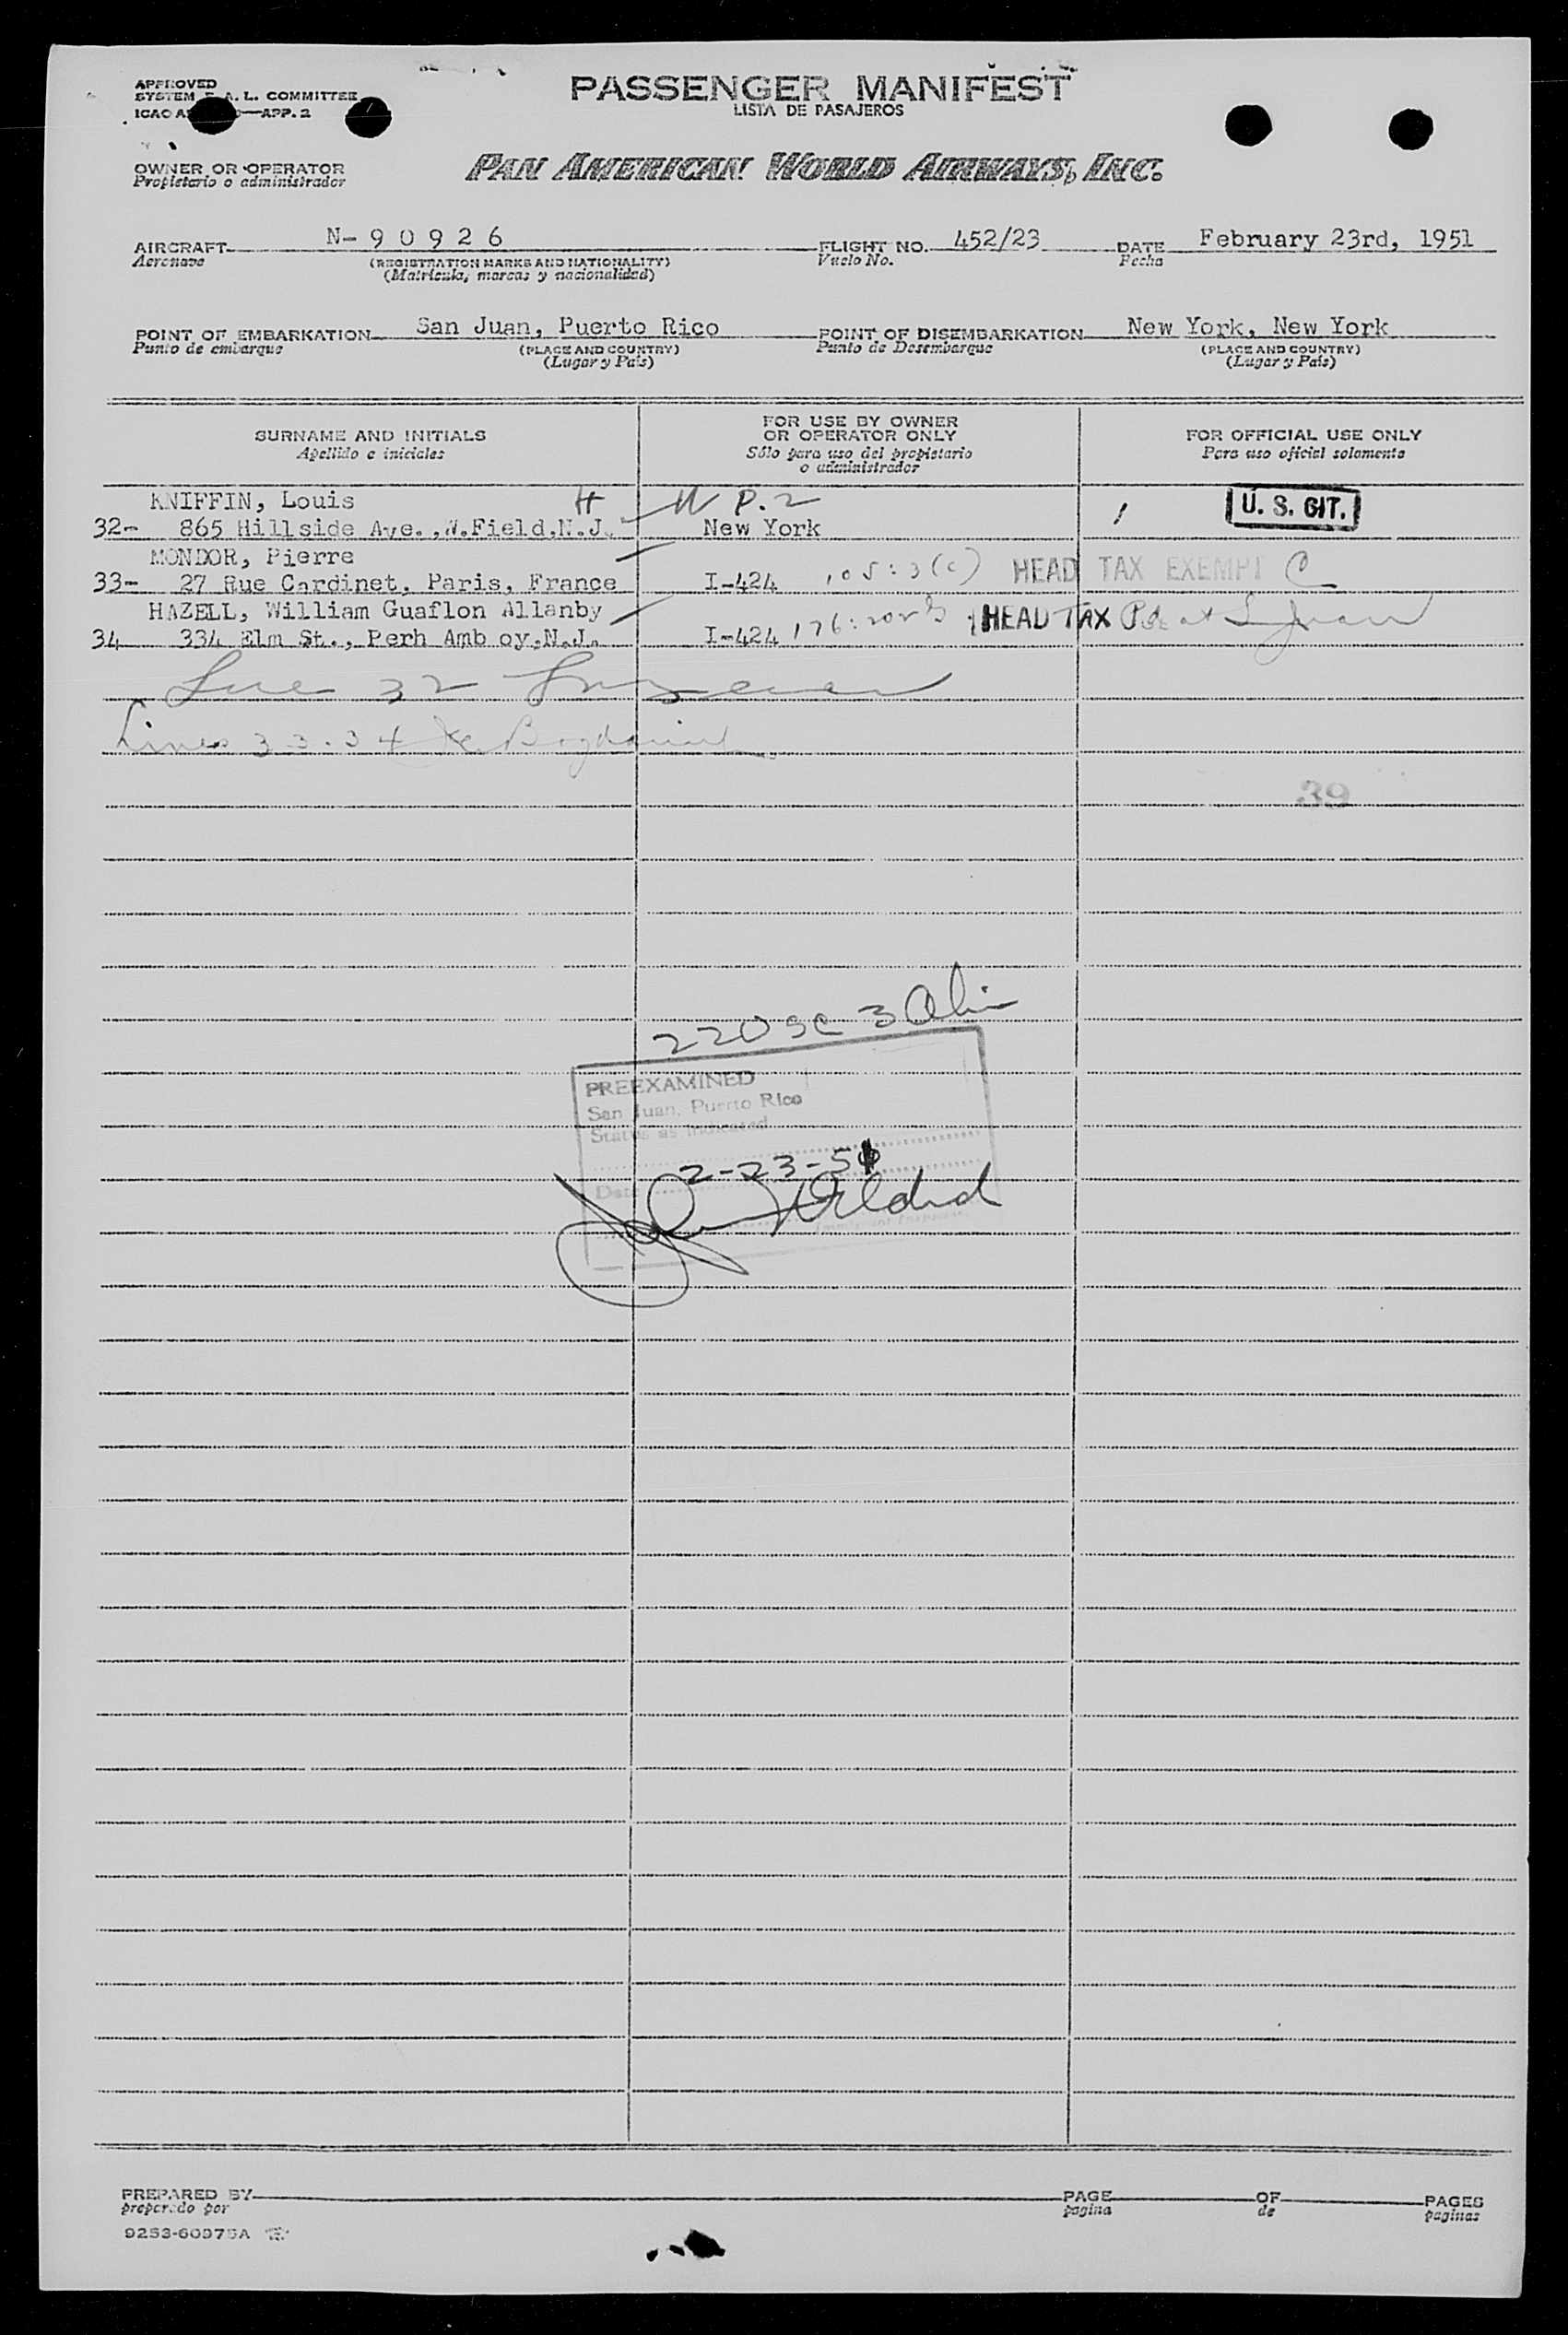 APPROVED
SYSTEM F. A. L. COMMITTEE
ICAO —APP. 2
PASSENGER MANIFEST
LISTA DE PASAJEROS
OWNER OR OPERATOR
Propietario o administrador
PAN AMERICAN WORLD AIRWAYS, INC.
AIRCRAFT N-90926 FLIGHT NO. 452/23 DATE February 23rd, 1951
Aeronave (REGISTRATION MARKS AND NATIONALITY) Vuelo No. Fecha
(Matrícula, marcas y nacionalidad)
POINT OF EMBARKATION San Juan, Puerto Rico POINT OF DISEMBARKATION New York, New York
Punto de embarque (PLACE AND COUNTRY) Punto de Desembarque (PLACE AND COUNTRY)
(Lugar y País) (Lugar y País)
SURNAME AND INITIALS
Apellido e iniciales
FOR USE BY OWNER
OR OPERATOR ONLY
Sólo para uso del propietario
o administrador
FOR OFFICIAL USE ONLY
Para uso oficial solamente
KNIFFIN, Louis H W P.2 1 U. S. CIT.
32- 865 Hillside Ave.,N.Field,N.J. New York
MONDOR, Pierre
33- 27 Rue Cardinet, Paris, France I-424 105:3(c) HEAD TAX EXEMPT C
HAZELL, William Guaflon Allanby
34 334 Elm St., Perh Amb oy,N.J. I-424 176:202 HEAD TAX Pd at S Juan
Line 32
Lines 33-34
39
220 sc 3 Alin
PREEXAMINED
San Juan, Puerto Rico
Status as indicated
Date 2-23-51
Immigrant Inspector
PREPARED BY PAGE OF PAGES
preparado por pagina de paginas
9253-60975A